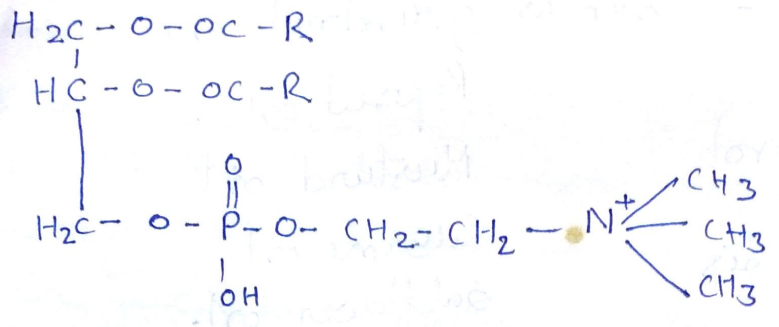 H2C - O - OC - R
HC - O - OC - R
O
H2C - O - P - O - CH2 - CH2 - N+
CH3
CH3
CH3
OH